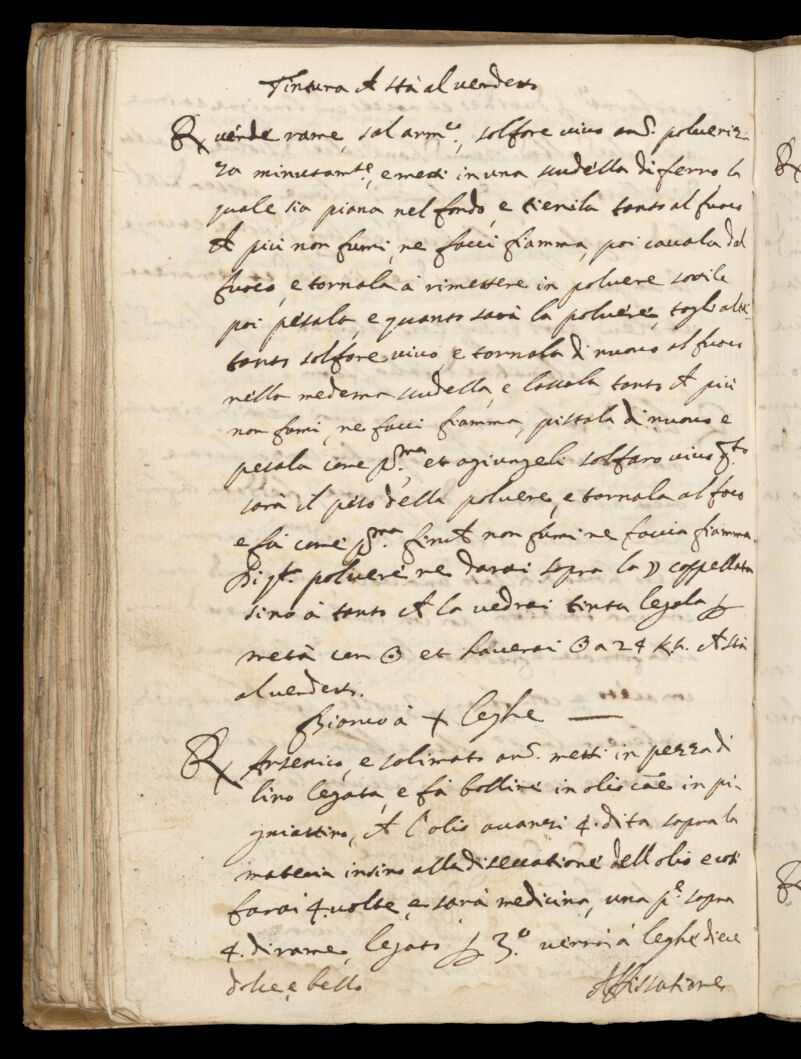 Tintura ch stà al verdetto
℞ verde rame, sal arm.co, solfore vivo an.s polveriz-
za minutam.te, e metti in una scudella di ferro, la
quale sia piana nel fondo, e tienila tanto al fuoco
ch più non fumi, ne facci fiamma, poi cavala dal
fuoco, e tornala à rimettere in polvere sottile
poi pesala, e quanto sarà la polvere, togli altre-
tanto solfore vivo, e tornala di nuovo al fuoco
nella medema scudella, e lassala tanto ch più
non fumi, ne facci fiamma, pistala di nuovo e
pesala come p.ma et agiungeli solfaro vivo q.to
sarà il peso della polvere, e tornala al foco
e fà come p.ma finch non fumi ne faccia fiamma.
Di q.ta polvere ne darai sopra la ☽ coppellata
sino à tanto ch la vedrai tinta legala p
metà con ☉ et haverai ☉ a 24 K.ti ch stà
al verdetto.
Bianco à X leghe —
℞ Arsenico, e solimato an.s metti in pezza di
lino legata, e fà bollire in olio cõe in pi-
gniattino, ch l'olio avanzi 4. dita sopra la
materia insino alla diseccatione dell'olio e così
farai 4. volte, e sarà medicina, una p.e sopra
4. di rame, legato p 3.o verrà à leghe diece
dolce, e bello
Affissatione